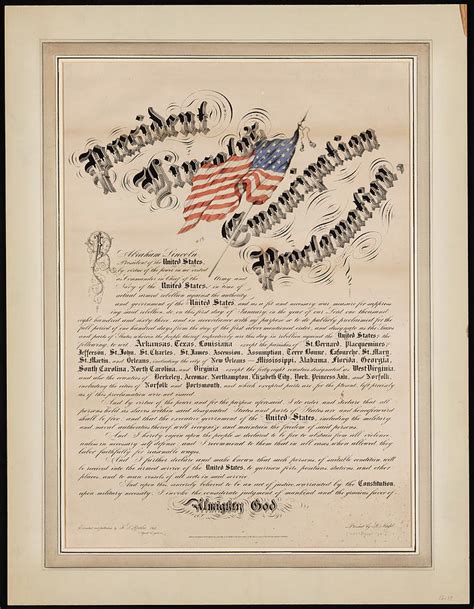 President
Lincoln's
Emancipation
Proclamation.
I, Abraham Lincoln
President of the United States,
by virtue of the power in me vested
as Commander in Chief of the Army and
Navy of the United States, in time of
actual armed rebellion against the authority
and government of the United States and as a fit and necessary war measure for suppress
ing said rebellion, do on this first day of January, in the year of our Lord one thousand
eight hundred and sixty three, and in accordance with my purpose so to do publicly proclaimed for the
full period of one hundred days from the day of the first above mentioned order, and designate as the States
and parts of States wherein the people thereof respectively are this day in rebellion against the United States; the
following, to wit: Arkansas, Texas, Louisiana except the parishes of St. Bernard, Plaquemines,
Jefferson, St. John, St. Charles, St. James, Ascension, Assumption, Terre Bonne, Lafourche, St. Mary,
St. Martin, and Orleans, including the city of New Orleans Mississippi, Alabama, Florida, Georgia,
South Carolina, North Carolina, and Virginia except the forty eight counties designated as West Virginia,
and also the counties of Berkeley, Accomac, Northampton, Elizabeth City, York, Princess Ann, and Norfolk,
including the cities of Norfolk and Portsmouth, and which excepted parts are for the present, left precisely
as if this proclamation were not issued.
And by virtue of the power, and for the purpose aforesaid, I do order and declare that all
persons held as slaves within said designated States and parts of States are and henceforward
shall be free; and that the executive government of the United States, including the military
and naval authorities thereof, will recognize and maintain the freedom of said persons.
And I hereby enjoin upon the people so declared to be free to abstain from all violence
unless in necessary self defence, and I recommend to them that in all cases when allowed, they
labor faithfully for reasonable wages.
And I further declare and make known that such persons of suitable condition will
be received into the armed service of the United States, to garrison forts, positions, stations, and other
places, and to man vessels of all sorts in said service.
And upon this, sincerely believed to be an act of justice, warranted by the Constitution,
upon military necessity, I invoke the considerate judgment of mankind and the gracious favor of
Almighty God